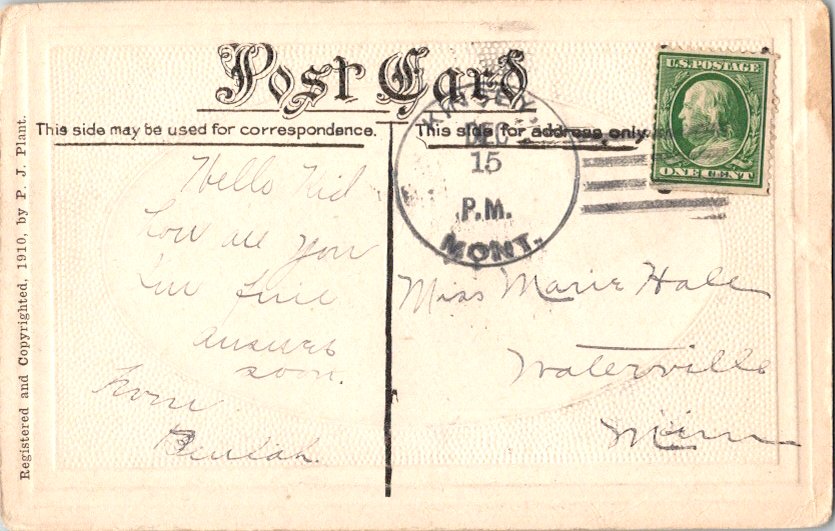 Post Card
This side may be used for correspondence.
This side for address only.
U.S. POSTAGE
ONE CENT
DEC
15
P.M.
MONT.
Hello Kid
How are you
I'm fine
answer
soon.
from
Beulah.
Miss Marie Hale
Waterville
Minn
Registered and Copyrighted, 1910, by P. J. Plant.